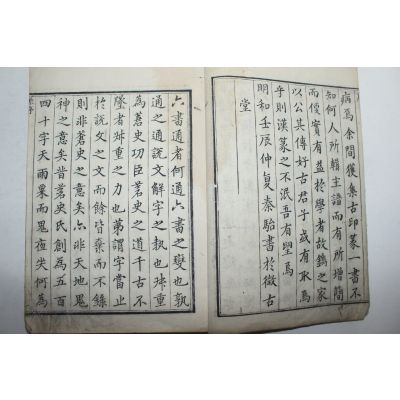 病焉余間獲集古印篆一書不
知何人所輯主譜而有所增簡
而優實有益於學者故鐫之家
以公其傳好古君子或有取焉
乎則漢篆之不泯吾有望焉
明和壬辰仲夏秦駘書於徵古
堂
六書通者何通六書之變也孰
通之通說文解字之教也孰重
為蒼史功臣蒼史之道千古不
墜者叔重之力也苐謂字當止
於說文之文而餘皆棄而不錄
則非蒼史之意矣亦非天地鬼
神之意矣昔蒼史氏創為五百
四十字天雨粟而鬼夜哭何為